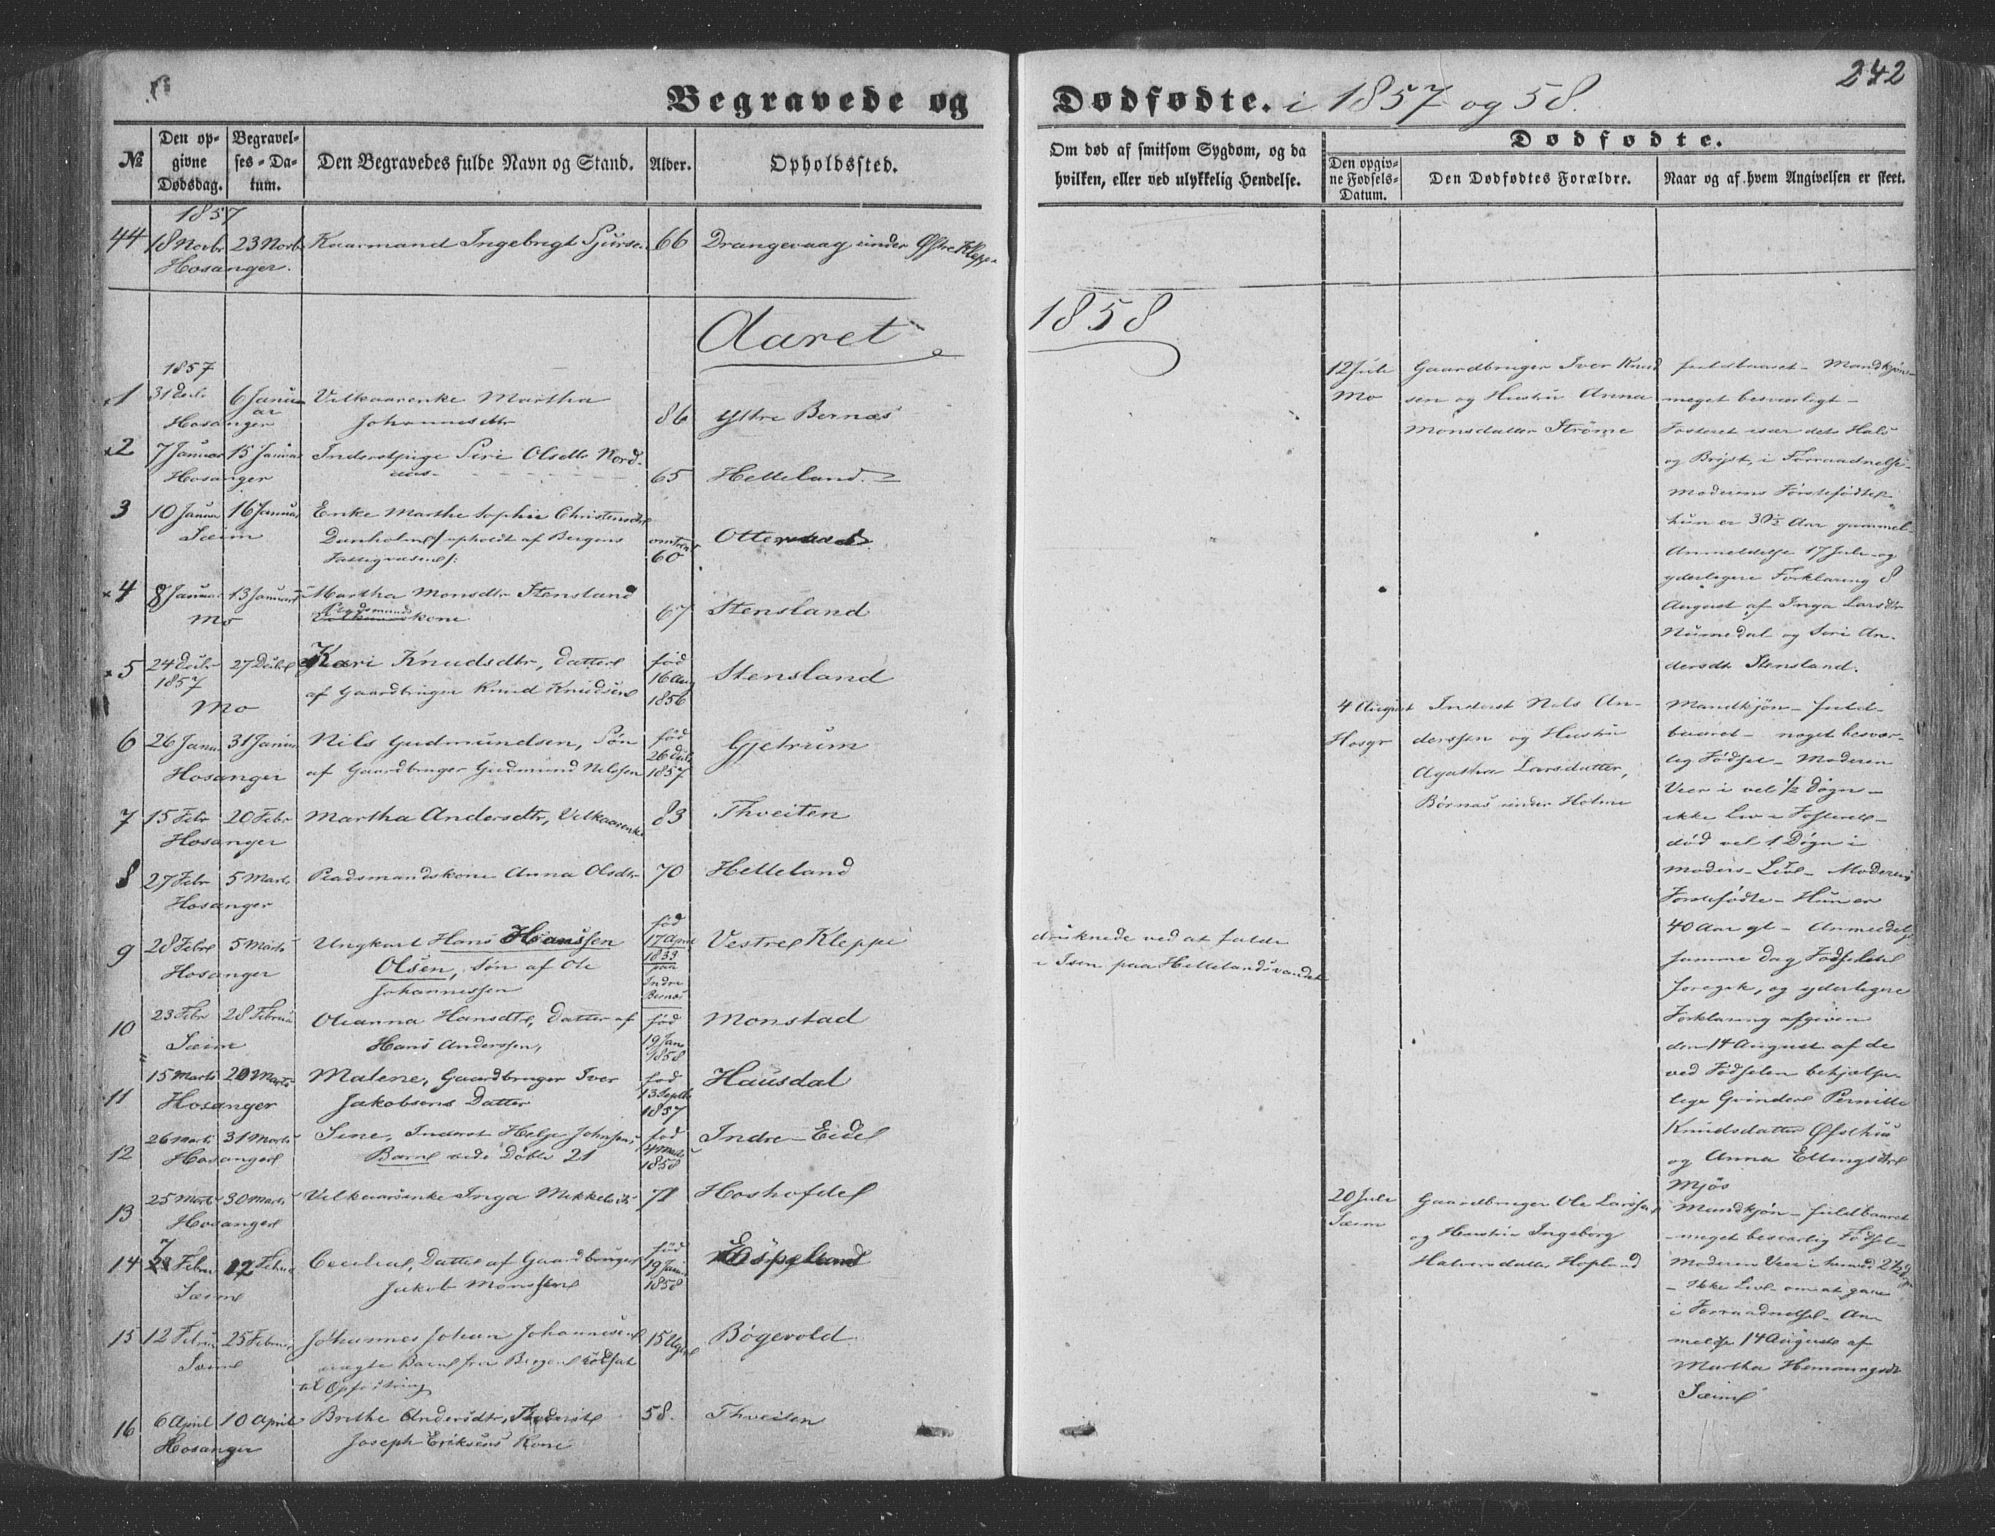 242
Begravede og Dødfødte. i 1857 og 58.
№
Den opgivne Dødsdag.
Begravelses-Datum.
Den Begravedes fulde Navn og Stand.
Alder.
Opholdssted.
Om død af smitsom Sygdom, og da hvilken, eller ved ulykkelig Hendelse.
Dødfødte.
Den opgivne Fødsels-Datum.
Den Dødfødtes Forældre.
Naar og af hvem Angivelsen er skeet.
1857
44 18 Novbr 23 Novb Ingebrigt 66 Drangevaag under Østre Kleppe
Hosanger.
Aaret 1858
1857
1 31 Decb 6 Januar Vilkaarenke Martha 86 Ytre Bernæs
Hosanger Johannesdtr
2 7 Januar 15 Januar Inderstpige Siri Olsdtr 65 Helleland
Hosanger
3 10 Januar 16 Januar Enke Marthe Sophie omtrent 60
Sæim
4 8 Januar 13 Januar Martha Monsdtr Stensland 67 Stensland
Mo kone
5 24 Decbr 27 Decbr Kari Knudsdtr, Datter født Stensland
1857 af Gaardbruger Knud Knudsen 16 Aug
Mo 1856
6 26 Janu 31 Janu Nils Gudmundsen, Søn født Gjetrum
Hosanger af Gaardbruger Gudmund Nilssen 26 Decb 1857
7 15 Febr 20 Febr Martha Andersdtr, Vilkaarenke 83 Thveiten
Hosanger
8 27 Febr 5 Marts Anna Olsdtr 70 Helleland
Hosanger
9 28 Febr 5 Marts Ungkarl Hans Hanssen født Vestre Kleppe
Hosanger Olsen, Søn af Ole 17 April 1833
Johannessen paa Indre Bernæs
druknede ved at falde
i Isen paa Hellelandsvandet
10 23 Febr 28 Februar Oleanna Hansdtr, Datter af født Monstad
Sæim Hans Anderssen, 19 Jan 1858
11 15 Marts 20 Marts Malene, Gaardbruger Iver født Hausdal
Hosanger Jakobsens Datter 13 Septbr 1857
12 26 Marts 31 Marts Sine, Inderst Helge Johnsens født Indre Eide
Hosanger Barn vide Døbte 21 14 Marts 1858
13 25 Marts 30 Marts Vilkaarsenke Inga Mikkelsdtr 71
Hosanger
14 7 Febru 12 Februa Cecilia, Datter af Gaardbruger født Espeland
Sæim Jakob Monssen 19 Janu 1858
15 12 Februa 25 Februar Johannes Johan Johannesen 15 Uger Bøgevold
Sæim uægte Barn fra Bergen
til Opfostring
16 6 April 10 April Brithe Andersdtr, 58. Thveiten
Hosanger Joseph Eriksens Kone
12 Juli Gaardbruger Iver Knud- fuldbaaret - Mandkjøn
Mo sen og Hustru Anna meget besværligt -
Monsdatter Strømme Fosteret især det Hals
og Bryst, i Forraadnelse
Moderens Førstefødte
hun er 30½ Aar gammel
Anmeldelse 17 Juli og
yderligere Forklaring 8
August af Inga Larsdtr
Numedal og Siri An-
dersdt Stensland.
4 August Inderst Nils An- Mandkjøn - fuld-
Hosgr derssen og Hustru baaret - noget besvær-
Agatha Larsdatter, lig Fødsel - Moderen
Børnæs under Holme Veer i vel 1/2 Døgn -
ikke Liv i Fosteret -
død vel 1 Døgn i
Moders Liv - Moderens
Førstefødte - Hun er
40 Aar gl - Anmeldelse
samme Dag Fødselen
foregik, og yderligere
Forklaring afgiven
den 14 August af de
ved Fødselen behjælpe-
lige Qvinder Pernille
Knudsdatter Østhus
og Anna Ellingsdtr
Mjøs
20 Juli Gaardbruger Ole Larssen Mandkjøn - fuldbaaret
Sæim og Hustru Ingeborg - meget besværlig Fødsel -
Halvorsdatter Hopland Moderen Veer i
- Ikke Liv -
i Forraadnelse - An-
meldt 14 August af
Martha Hemmingsdt
Sæim